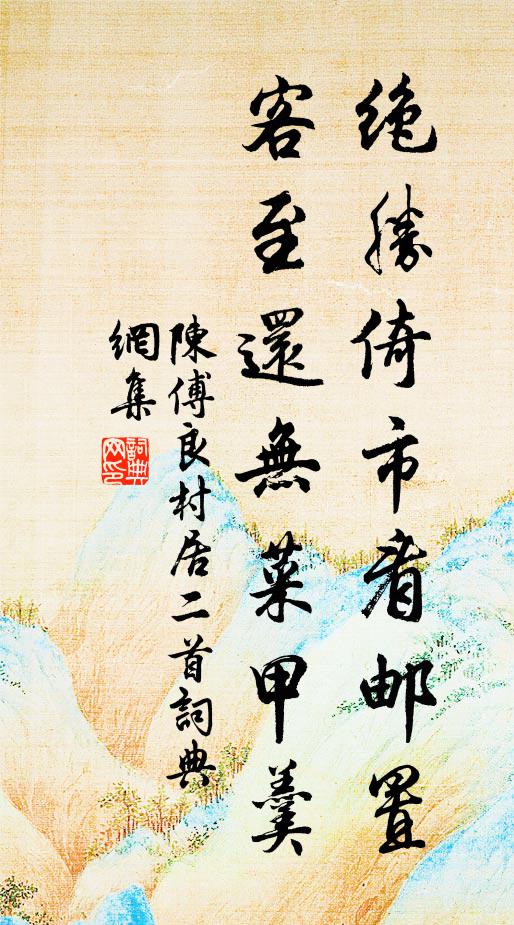 绝勝倚市看邮置
客至還無菜甲羹
陳傅良村居二首詞典
網集
詞典
网印